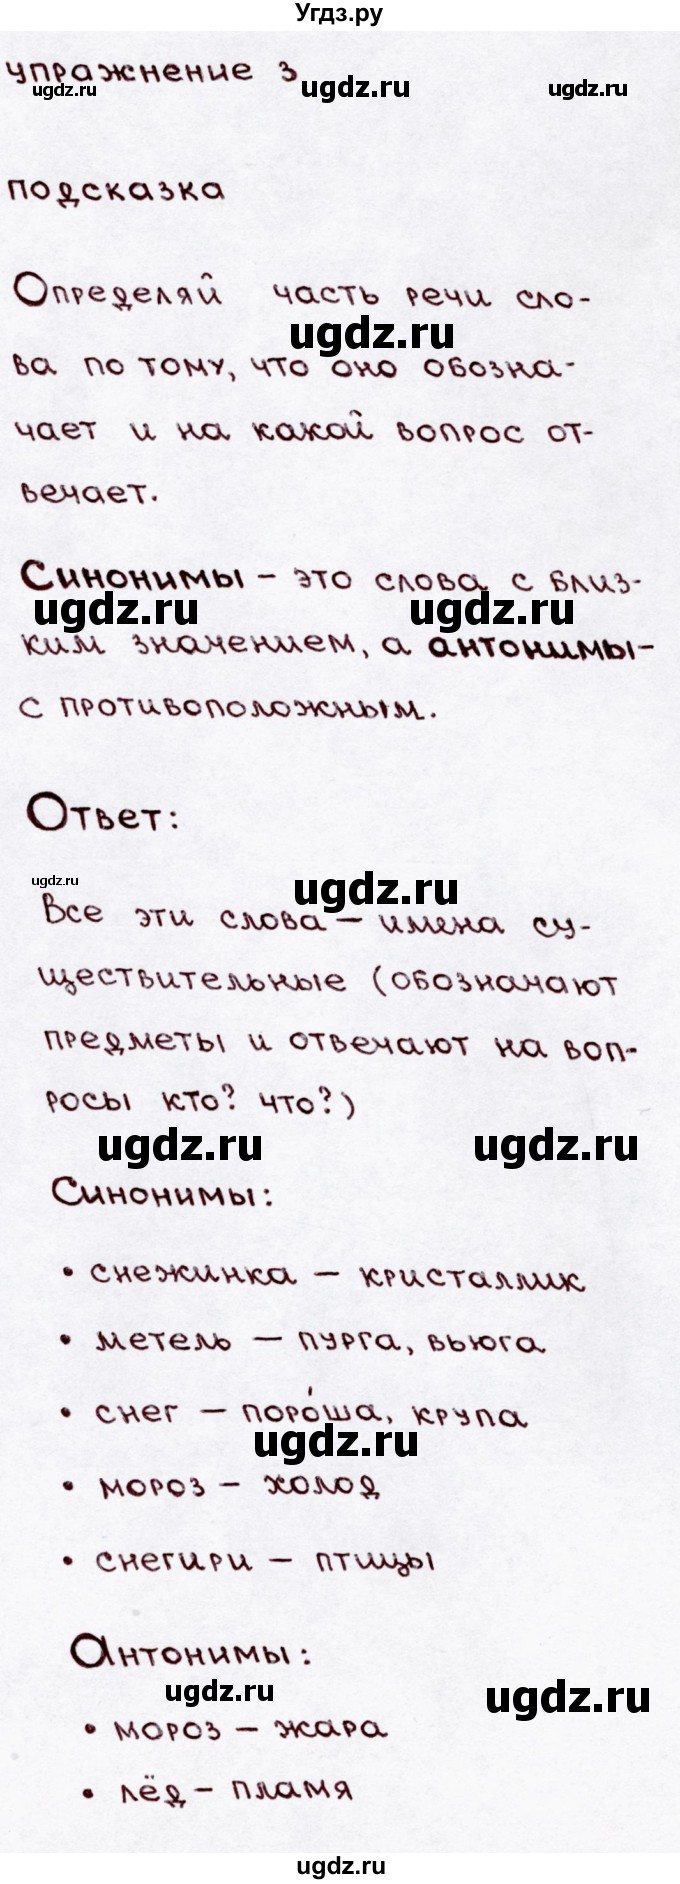 Угдз.ру
упражнение 3
ugdz.ru ugdz.ru ugdz.ru
подсказка
Определяй часть речи сло-
ugdz.ru
ва по тому, что оно обозна-
чает и на какой вопрос от-
вечает.
Синонимы – это слова с близ-
ugdz.ru ugdz.ru
ким значением, а антонимы-
с противоположным.
Ответ:
ugdz.ru ugdz.ru
Все эти слова – имена су-
ществительные (обозначают
предметы и отвечают на воп-
росы кто? что?)
ugdz.ru ugdz.ru
Синонимы:
• снежинка – кристаллик
• метель – пурга, вьюга
• снег – поро́ша, крупа
ugdz.ru
• мороз – холод
• снегири – птицы
Антонимы:
ugdz.ru ugdz.ru
• мороз – жара
• лёд – пламя
ugdz.ru